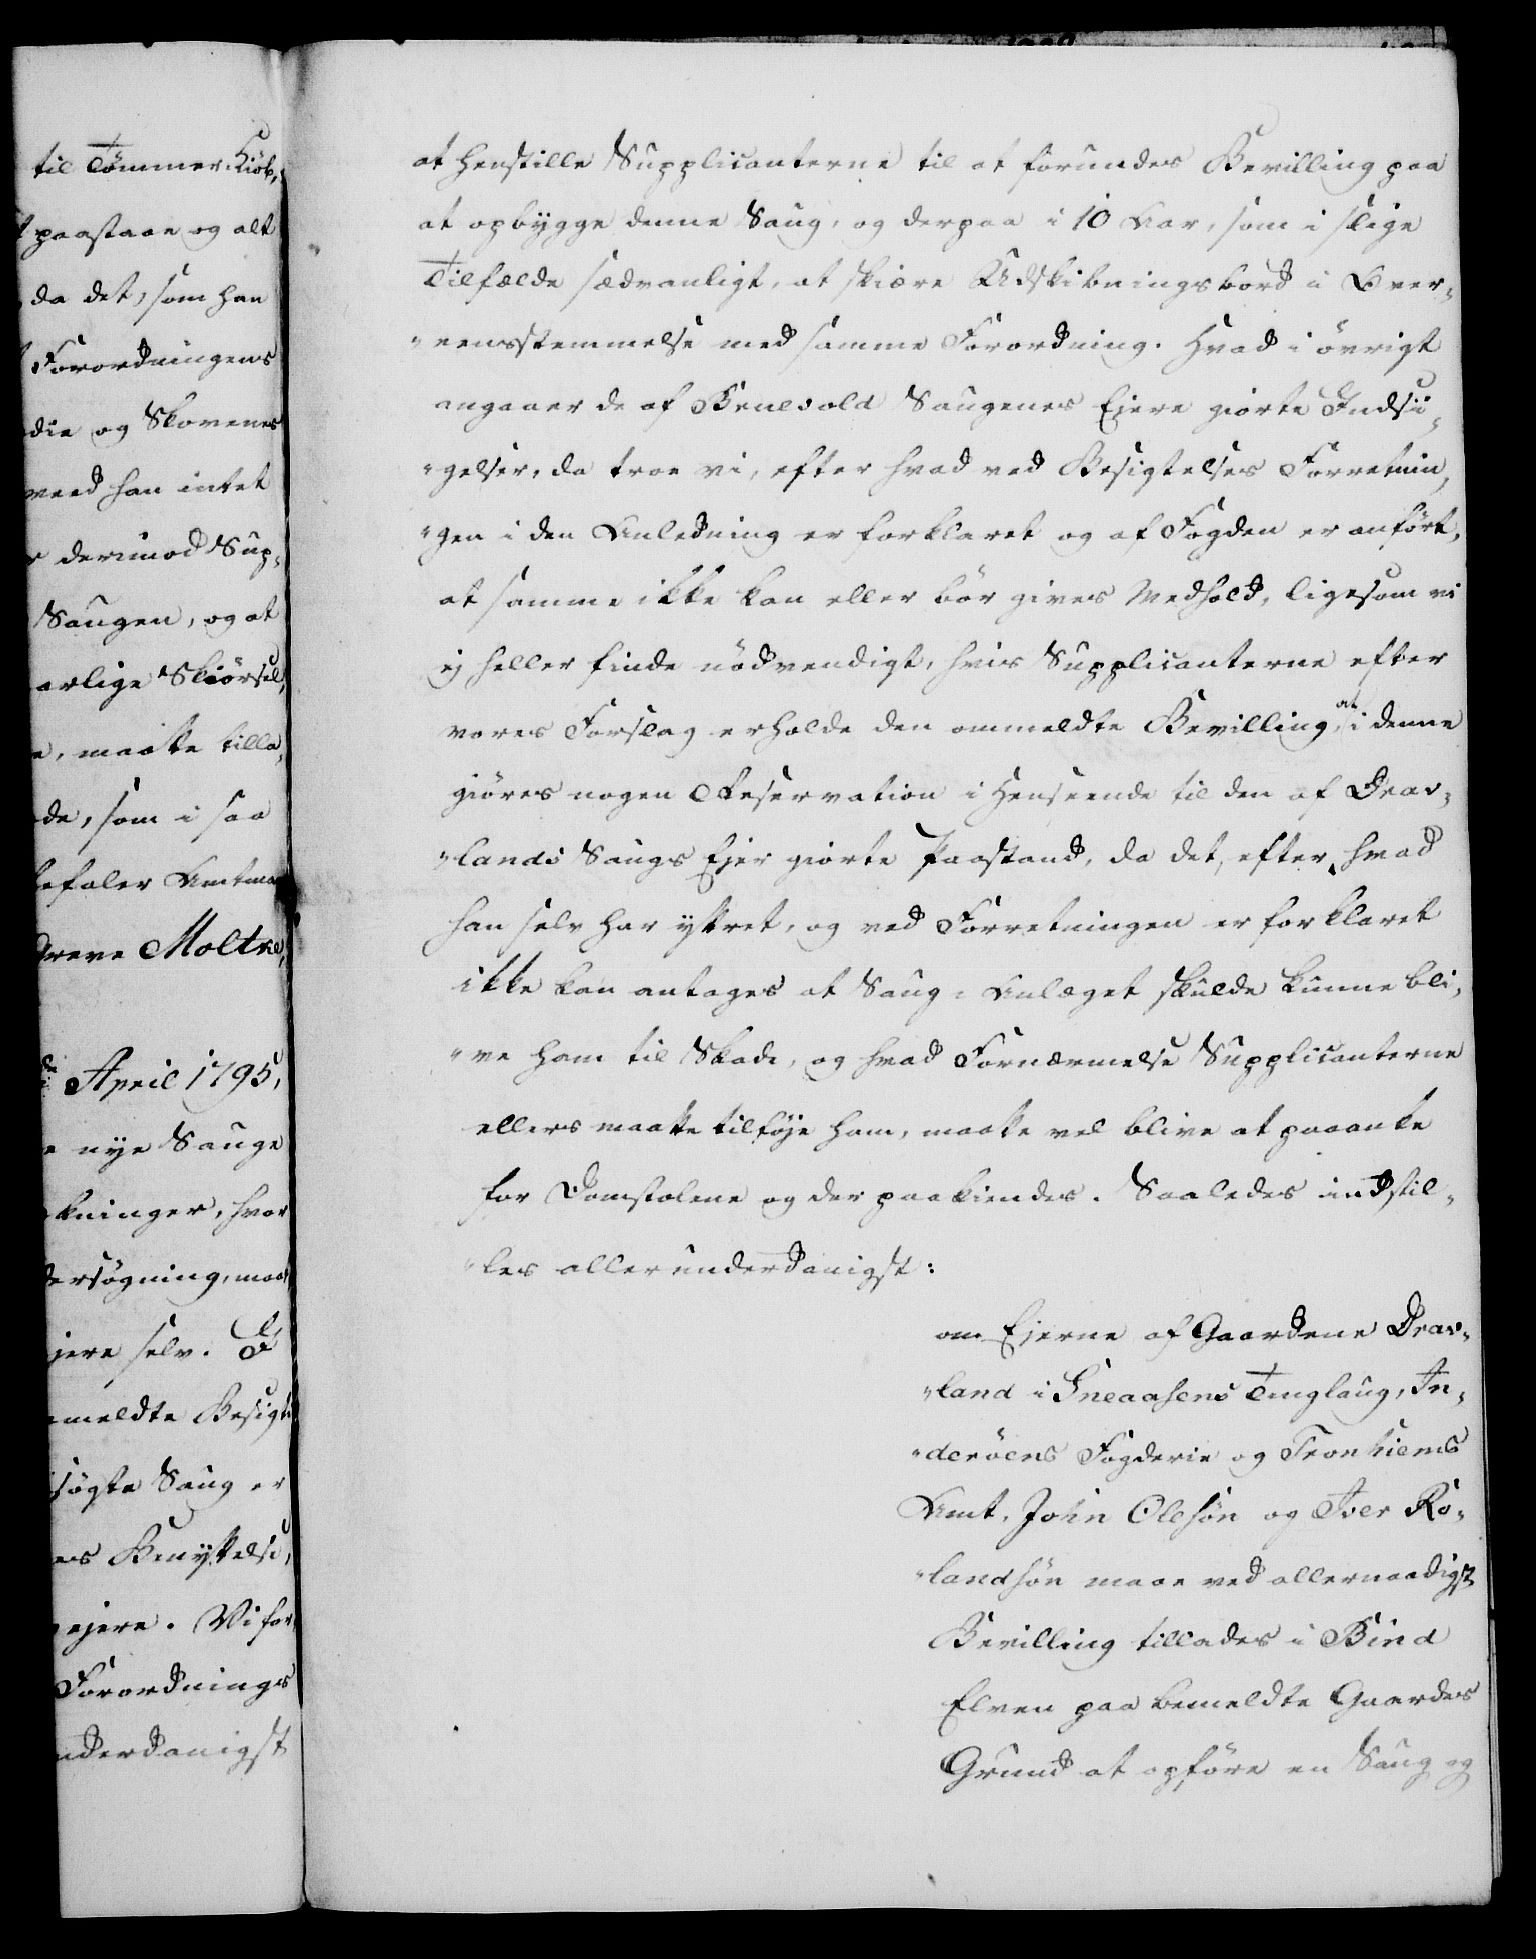 til Tömmer-Kiöb,
paastaae og alt
da det, som han
Forordningens
die og Skovenes
veed han intet
derimod Sup¬
Saugen, og at
arlige Skiörsel,
maatte tilla¬
de, som i saa
befaler Amtma
Greve Moltke,
April 1795,
nye Sauge
kninger, hvor
ersögning, maa
jere selv. E
meldte Besigt
sögte Saug er
es Benyttelse,
ejere. Vi for
Forordnings
nderdanigst
at henstille Supplicanterne til at forundes Bevilling paa
at opbygge denne Saug, og derpaa i 10 Aar, som i slige
Tilfælde sædvanligt, at skiære Udskibningsbord i Over¬
„eensstemmelse med samme Forordning. Hvad i övrigt
angaaer de af Bruevold Saugenes Ejere giorte Indsi¬
„gelser, da troe vi, efter hvad ved Besigtelses Forretnin¬
„gen i den Anledning er forklaret og af Fogden er anfört,
at samme ikke kan eller bör gives Medhold, ligesom vi
ej heller finde nödvendigt, hvis Supplicanterne efter
vores Forslag erholde den ommeldte Bevilling, at i denne
giöres nogen Reservation i Henseende til den af Drav¬
„lands Saugs Ejer giorte Paastand, da det, efter hvad
han selv har yttret, og ved Forretningen er forklaret
ikke kan antages at Saug-Anlæget skulde kunne bli¬
„ve ham til Skade, og hvad Fornærmelse Supplicanterne
ellers maatte tilföje ham, maatte vel blive at paaanke
for Domstolene og der paakiendes. Saaledes indstil¬
„les allerunderdanigst:
om Ejerne af Gaardene Drav¬
„land i Sneaasens Tinglaug, In¬
„deröens Fogderie og Tronhiems
Amt, John Olesön og Iver Ro¬
„landsön maae ved allernaadigst
Bevilling tillades i Bind
Elven paa bemeldte Gaardes
Grund at opföre en Saug og